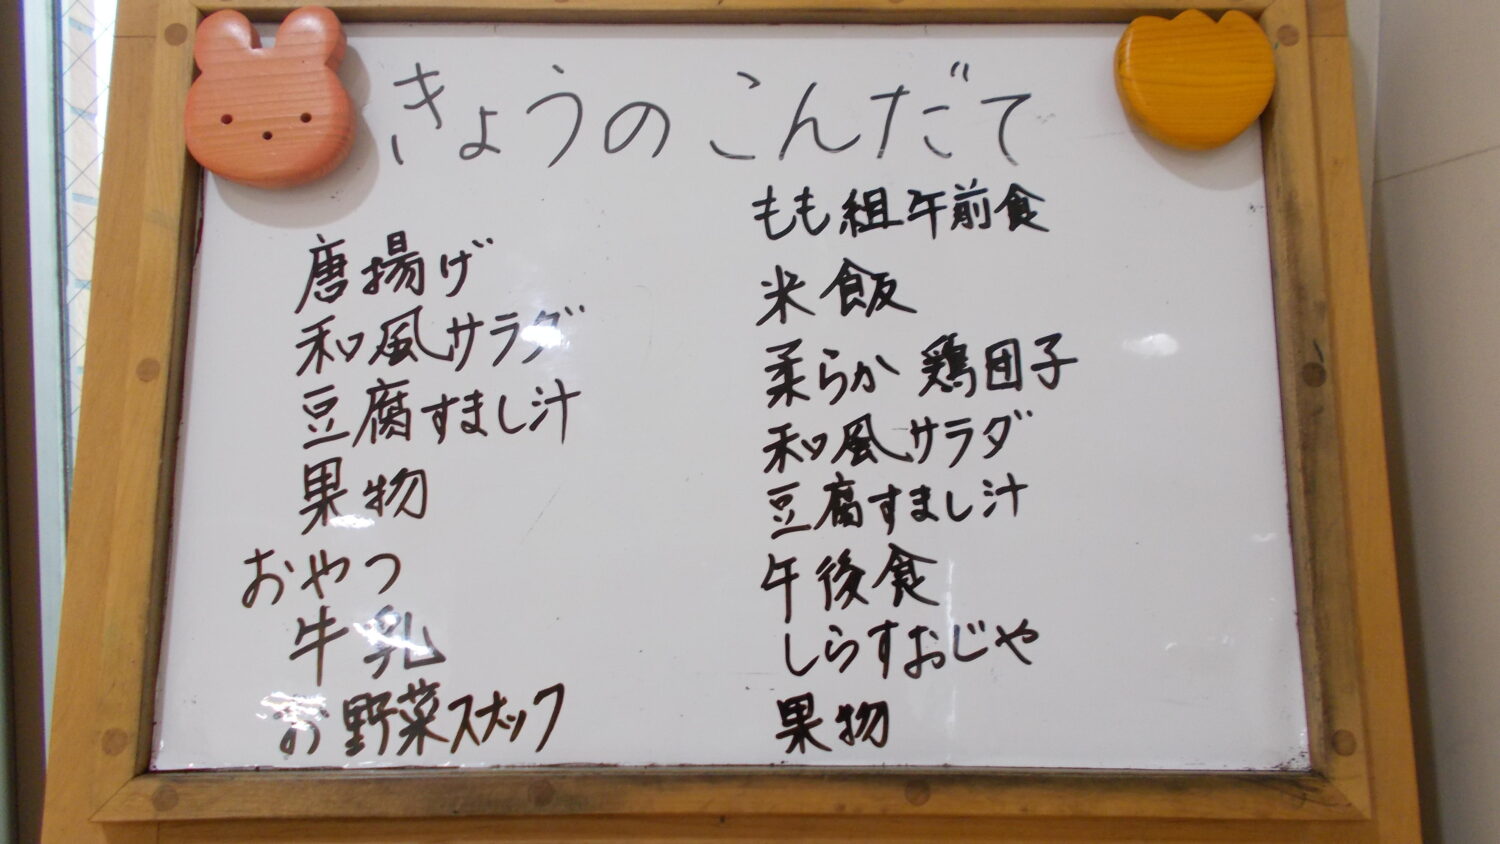 きょうの こんだて
唐揚げ
和風サラダ
豆腐すまし汁
果物
おやつ
牛乳
お野菜スナック
もも組午前食
米飯
柔らか鶏団子
和風サラダ
豆腐すまし汁
午後食
しらすおじや
果物